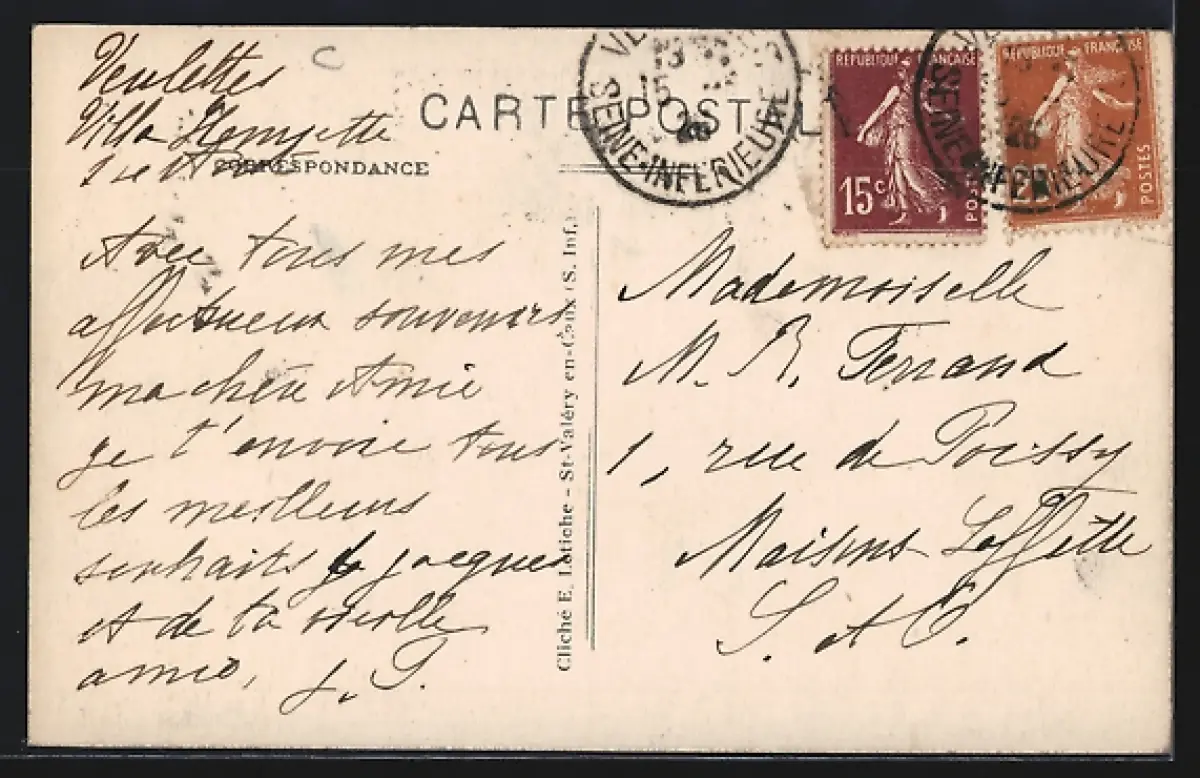 Veulettes
Villa
C
CARTE POSTALE
CORRESPONDANCE
Avec tous mes
affectueux souvenirs
ma chère Amie
je t'envoie tous
les meilleurs
souhaits de Jacques
et de ta vieille
amie, J. P.
Cliché E. Latiche - St-Valéry en-Caux (S. Inf.)
SEINE-INFERIEURE
15
26
REPUBLIQUE FRANÇAISE
15c
POSTES
SEINE-INFERIEURE
26
REPUBLIQUE FRANÇAISE
25
POSTES
Mademoiselle
M. R. Ferrand
1, rue de Poissy
Maisons-Laffitte
S. et O.